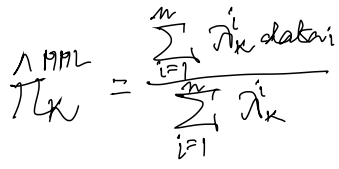 \hat{\pi}_k^{MML} = \frac{\sum_{i=1}^{n} \lambda_k^i data_i}{\sum_{i=1}^{n} \lambda_k^i}